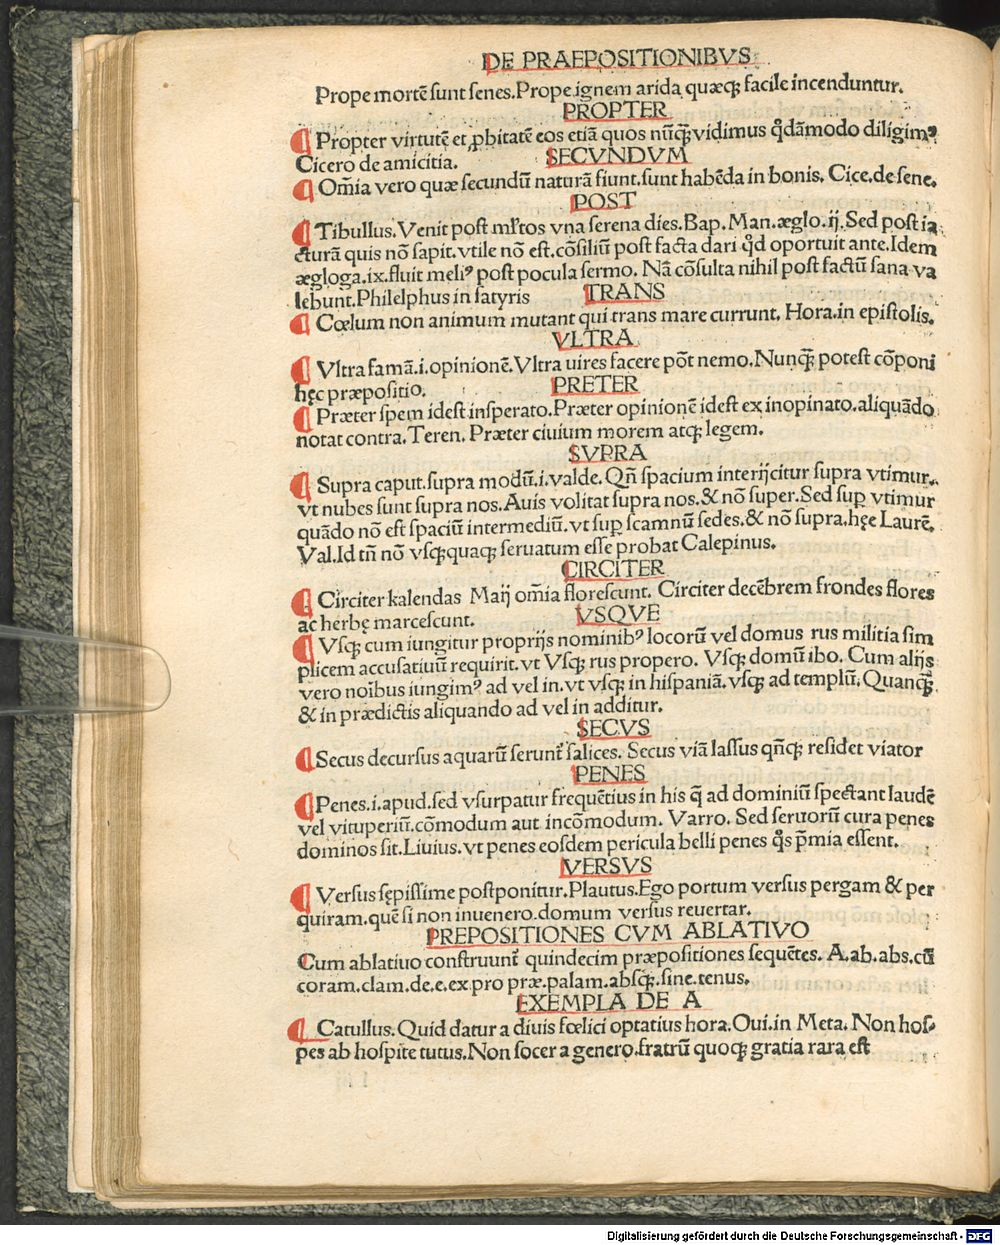 DE PRAEPOSITIONIBVS
Prope mortē sunt senes. Prope ignem arida quæqꝫ facile incenduntur.
PROPTER
¶ Propter virtutē et ꝓbitatē eos etiā quos nūqꝫ̄ vidimus q̊dāmodo diligimꝰ
Cicero de amicitia.
SECVNDVM
¶ Om̄ia vero quæ secundū naturā fiunt. sunt habēda in bonis. Cice. de sene.
POST
¶ Tibullus. Venit post ml̄tos vna serena dies. Bap. Man. æglo. ij. Sed post ia
cturā quis nō sapit. vtile nō est. cōsiliū post facta dari q̊d oportuit ante. Idem
ægloga. ix. fluit meliꝰ post pocula sermo. Nā cōsulta nihil post factū sana va
lebunt. Philelphus in satyris
TRANS
¶ Cœlum non animum mutant qui trans mare currunt. Hora. in epistolis.
VLTRA
¶ Vltra famā. i. opinionē. Vltra uires facere pōt nemo. Nunqꝫ̄ potest cōponi
hęc præpositio.
PRETER
¶ Præter spem idest insperato. Præter opinionē idest ex inopinato. aliquādo
notat contra. Teren. Præter ciuium morem atqꝫ legem.
SVPRA
¶ Supra caput. supra modū. i. valde. Qn̄ spacium interijcitur supra vtimur.
vt nubes sunt supra nos. Auis volitat supra nos. & nō super. Sed suꝑ vtimur
quādo nō est spaciū intermediū. vt suꝑ scamnū sedes. & nō supra. hęe Laurē.
Val. Id tn̄ nō vsqꝫquaqꝫ seruatum esse probat Calepinus.
CIRCITER
¶ Circiter kalendas Maij om̄ia florescunt. Circiter decēbrem frondes flores
ac herbę marcescunt.
VSQVE
¶ Vsqꝫ cum iungitur proprijs nominibꝰ locorū vel domus rus militia sim
plicem accusatiuū requirit. vt Vsqꝫ rus propero. Vsqꝫ domū ibo. Cum alijs
vero noībus iungimꝰ ad vel in. vt vsqꝫ in hispaniā. vsqꝫ ad templū. Quanqꝫ̄
& in prædictis aliquando ad vel in additur.
SECVS
¶ Secus decursus aquarū serunt̄ salices. Secus viā lassus qn̄qꝫ residet viator
PENES
¶ Penes. i. apud. sed vsurpatur frequētius in his q̄ ad dominiū spectant laudē
vel vituperiū. cōmodum aut incōmodum. Varro. Sed seruorū cura penes
dominos sit. Liuius. vt penes eosdem pericula belli penes q̊s p̄mia essent.
VERSVS
¶ Versus sępissime postponitur. Plautus. Ego portum versus pergam & per
quiram. quē si non inuenero. domum versus reuertar.
PREPOSITIONES CVM ABLATIVO
Cum ablatiuo construunt̄ quindecim præpositiones sequētes. A. ab. abs. cū
coram. clam. de. e. ex pro præ. palam. absqꝫ. sine. tenus.
EXEMPLA DE A
¶ Catullus. Quid datur a diuis fœlici optatius hora. Oui. in Meta. Non hos-
pes ab hospite tutus. Non socer a genero. fratrū quoqꝫ gratia rara est
Digitalisierung gefördert durch die Deutsche Forschungsgemeinschaft - DFG